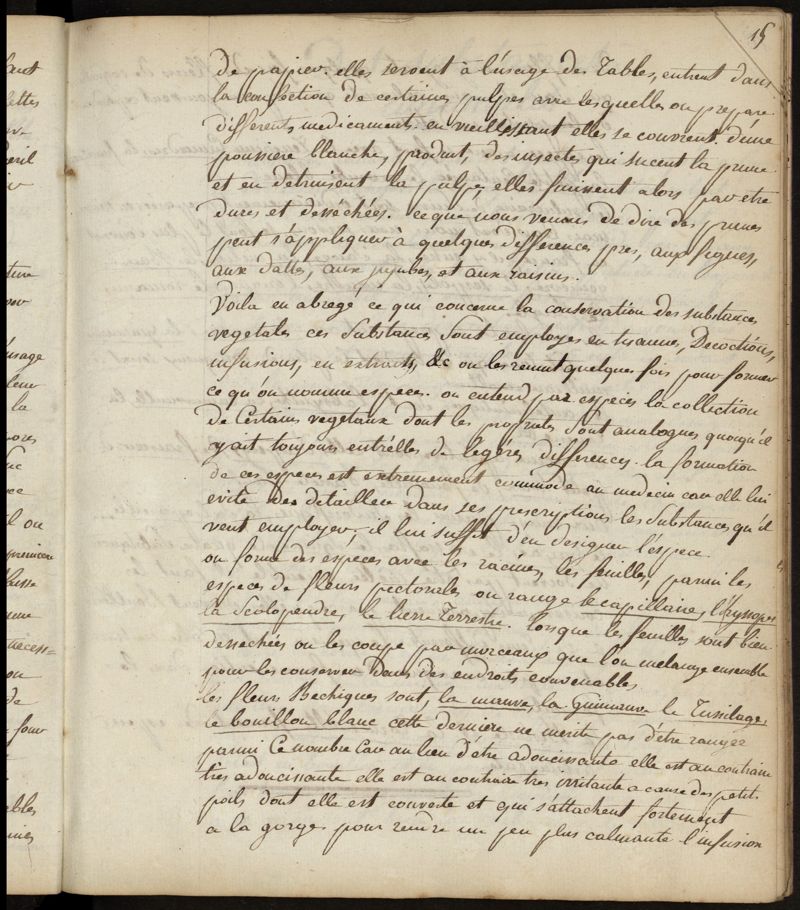 15
de papier. elles servent à l'usage des Tables, entrent dans
la confection de certaines pulpes avec lesquelles on prepare
differents medicaments. en vieillissant elles se couvrent d'une
poussiere blanche, produit, des insectes qui sucent la prune
et en detruisent la pulpe, elles finissent alors par etre
dures et desséchées. ce que nous venons de dire des prunes
peut s'appliquer à quelques differences pres, aux figues,
aux dattes, aux jujubes, et aux raisins.
Voila en abregé ce qui concerne la conservation des substances
vegetales ces Substances sont employes en tisannes, Decoctions,
infusions, en extraits, &c on les reunit quelques fois pour former
ce qu'on nomme especes. on entend par especes la collection
de Certains vegetaux dont les proprietes sont analogues quoiqu'il
y ait toujours entr'elles de legéres differences. la formation
de ces especes est extremement commode au medecin car elle lui
evite de detailler dans ses prescryptions les Substances qu'il
veut employer, il lui suffit d'en designer l'espece.
on forme des especes avec les racines, les feuilles, parmi les
especes de fleurs pectorales on range le capillaire, l'hyssope,
la Scolopendre, le lierre Terrestre. lorsque les feuilles sont bien
dessechées on les coupe par morceaux que l'on melange ensemble
pour les conserver dans des endroits convenables
les fleurs Bechiques sont, la mauve, la Guimauve le Tussilage,
le bouillon blanc cette derniere ne merite pas d'être ranger
parmi Ce nombre Car au lieu d'être adoucissante elle est au contraire
tres adoucissante elle est au contraire tres irritante a cause des petits
poils dont elle est couverte et qui s'attachent fortement
a la gorge pour rendre un peu plus calmante l'infusion